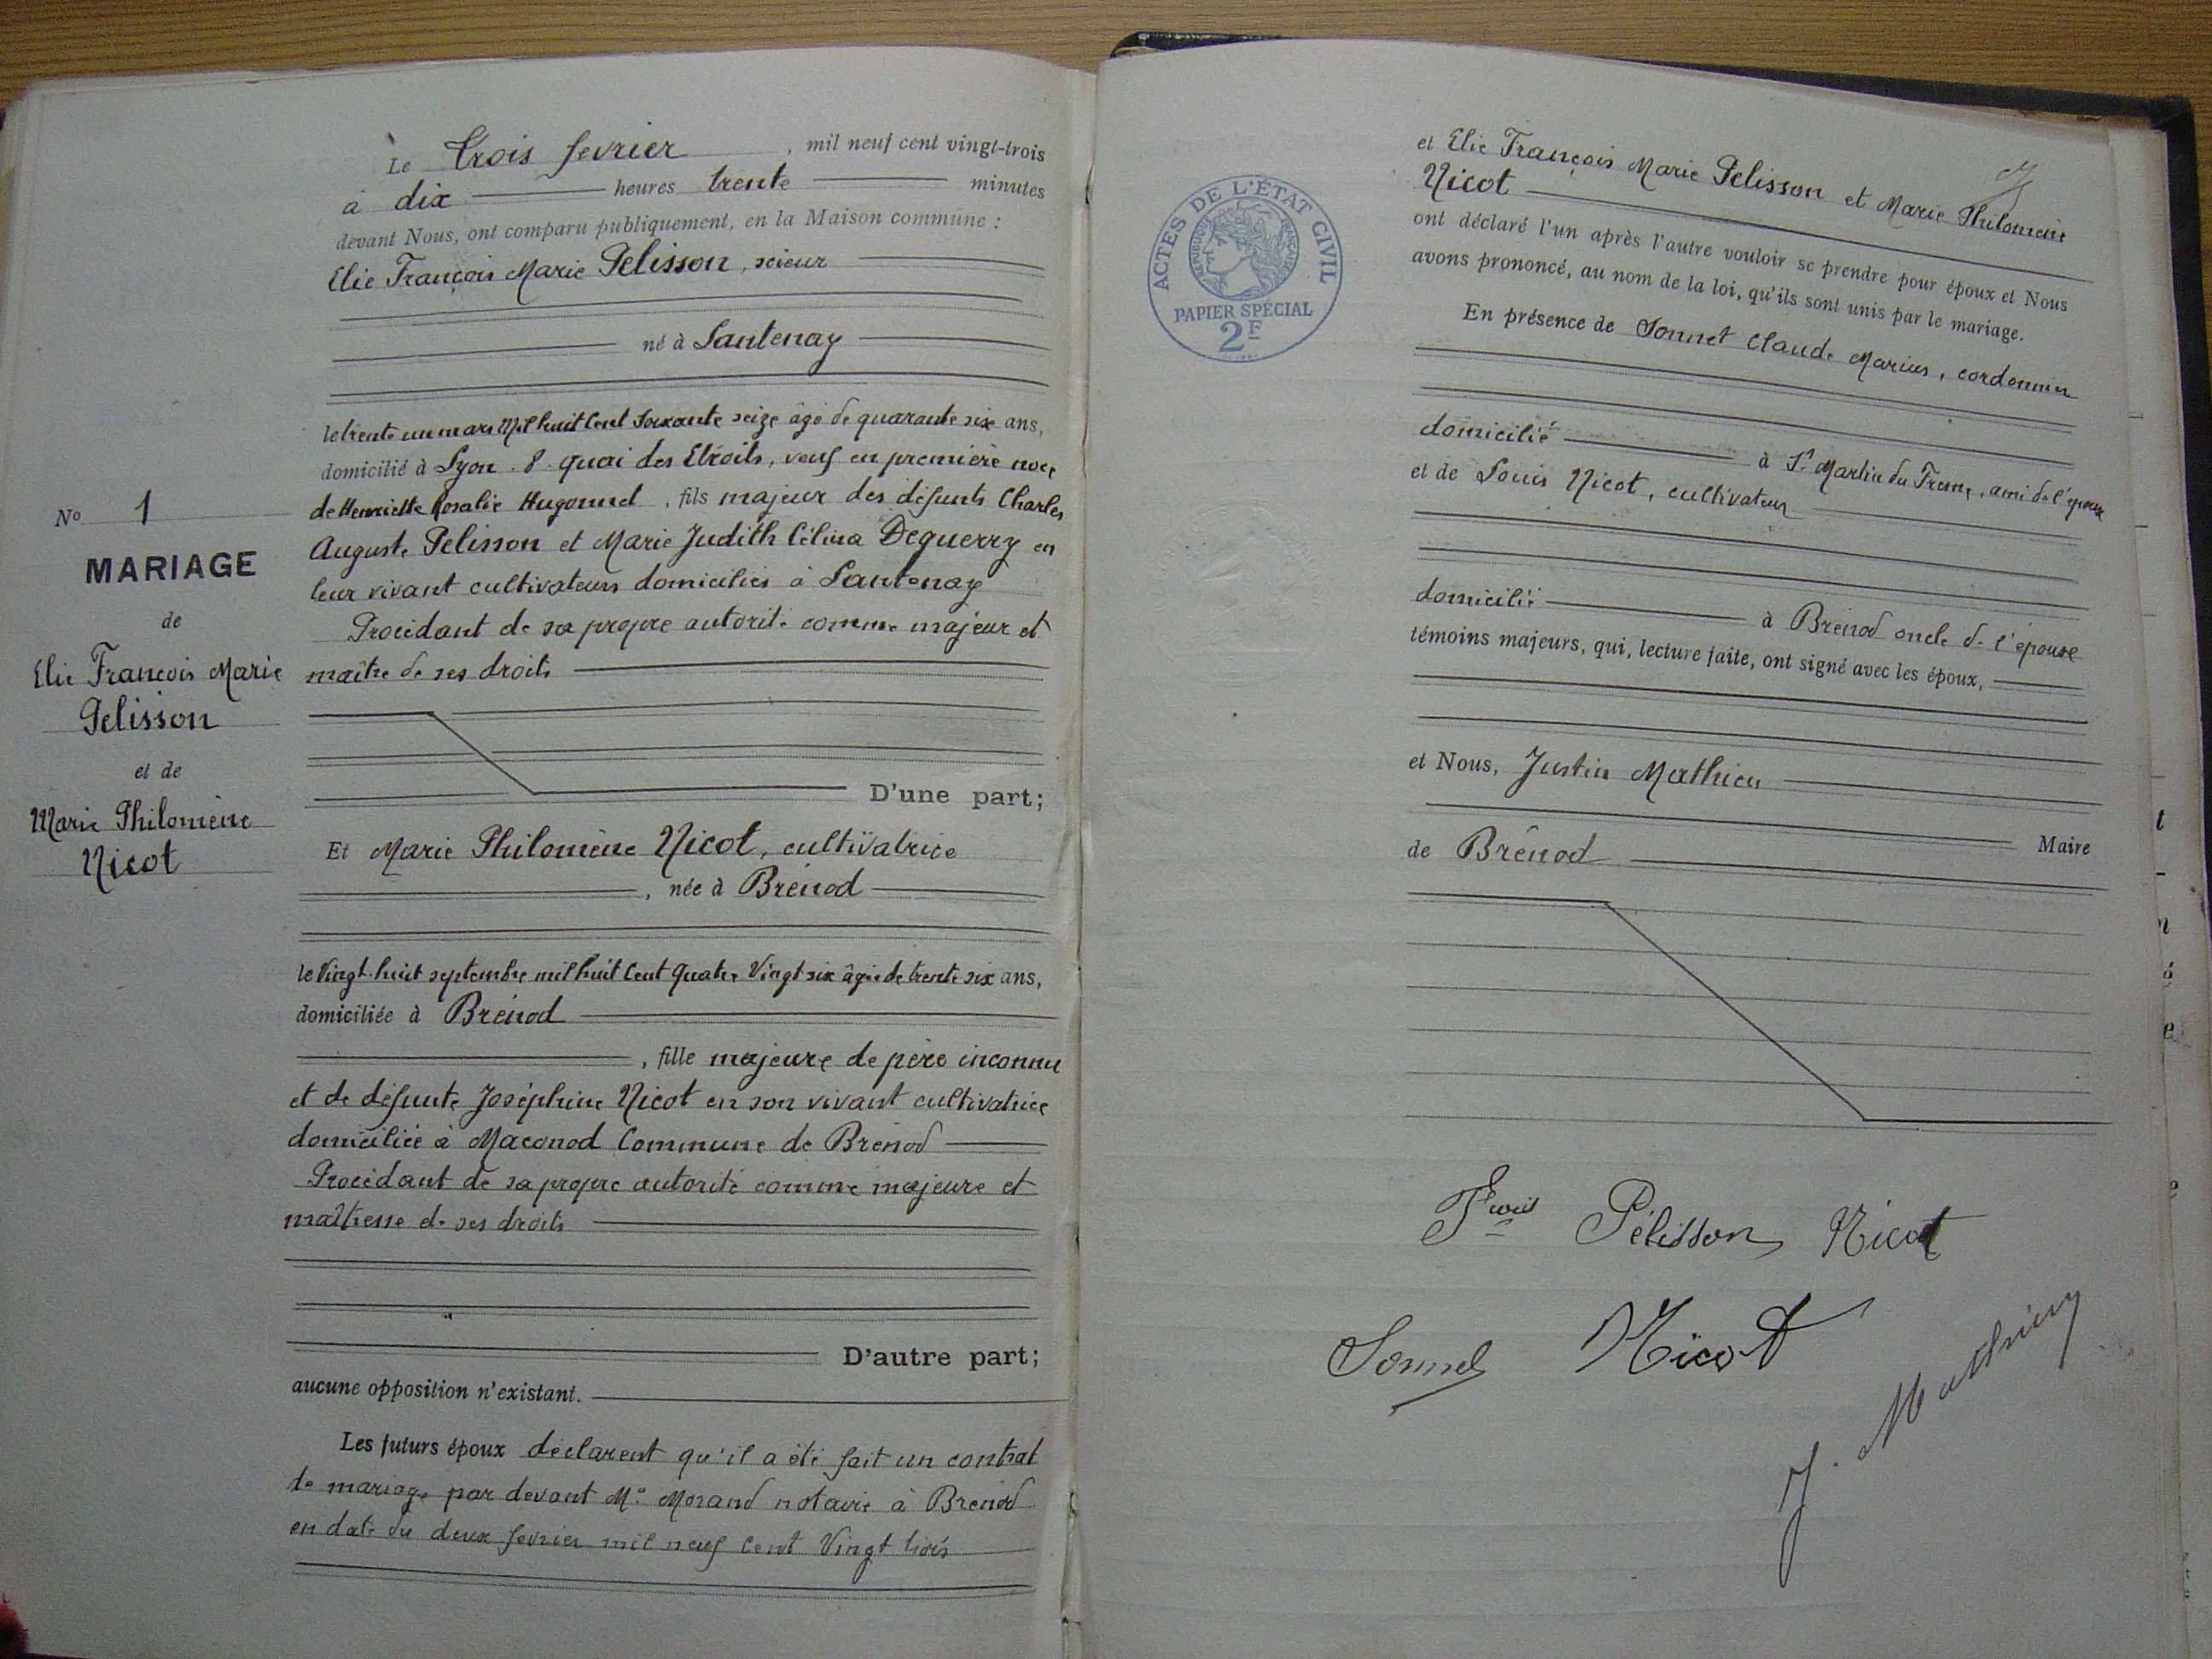 Le trois fevrier, mil neuf cent vingt-trois
à dix heures trente minutes
devant Nous, ont comparu publiquement, en la Maison commune :
Elie François Marie Pelisson, scieur
né à Lantenay
le trente un mars Mil huit Cent Soixante seize âgé de quarante six ans,
domicilié à Lyon. 8. quai des Etroits, veuf en première noce
de Henriette Rosalie Hugonnet, fils majeur des défunts Charles
Auguste Pelisson et Marie Judith Célina Deguerry en
leur vivant cultivateurs domiciliés à Lantenay
Procédant de sa propre autorité comme majeur et
maître de ses droits
D'une part;
No 1
MARIAGE
de
Elie François Marie
Pelisson
et de
Marie Philomène
Nicot
Et Marie Philomène Nicot, cultivatrice
, née à Brénod
le Vingt-huit septembre mil huit Cent Quatre Vingt six âgée de trente six ans,
domiciliée à Brénod
, fille majeure de père inconnu
et de défunte Joséphine Nicot en son vivant cultivatrice
domiciliée à Maconod Commune de Brénod
Procédant de sa propre autorité comme majeure et
maîtresse de ses droits
D'autre part;
aucune opposition n'existant.
Les futurs époux déclarent qu'il a été fait un contrat
de mariage par devant Me Morand notaire à Brénod
en date du deux fevrier mil neuf Cent Vingt trois
ACTES DE L'ÉTAT CIVIL
RÉPUBLIQUE FRANÇAISE
PAPIER SPÉCIAL
2F
et Elie François Marie Pelisson et Marie Philomène
Nicot
ont déclaré l'un après l'autre vouloir se prendre pour époux et Nous
avons prononcé, au nom de la loi, qu'ils sont unis par le mariage.
En présence de Sonnet Claude Marius, cordonnier
domicilié à St Martin du Fresne, ami de l'époux
et de Louis Nicot, cultivateur
domicilié à Brénod oncle de l'épouse
témoins majeurs, qui, lecture faite, ont signé avec les époux,
et Nous, Justin Mathieu
Maire
de Brénod
Pélisson Nicot
Sonnet Nicot
J. Mathieu